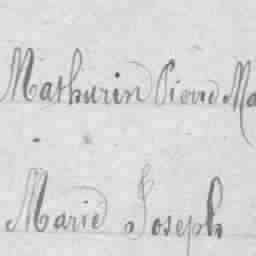 Mathurin Pierre Ma
Marie Joseph